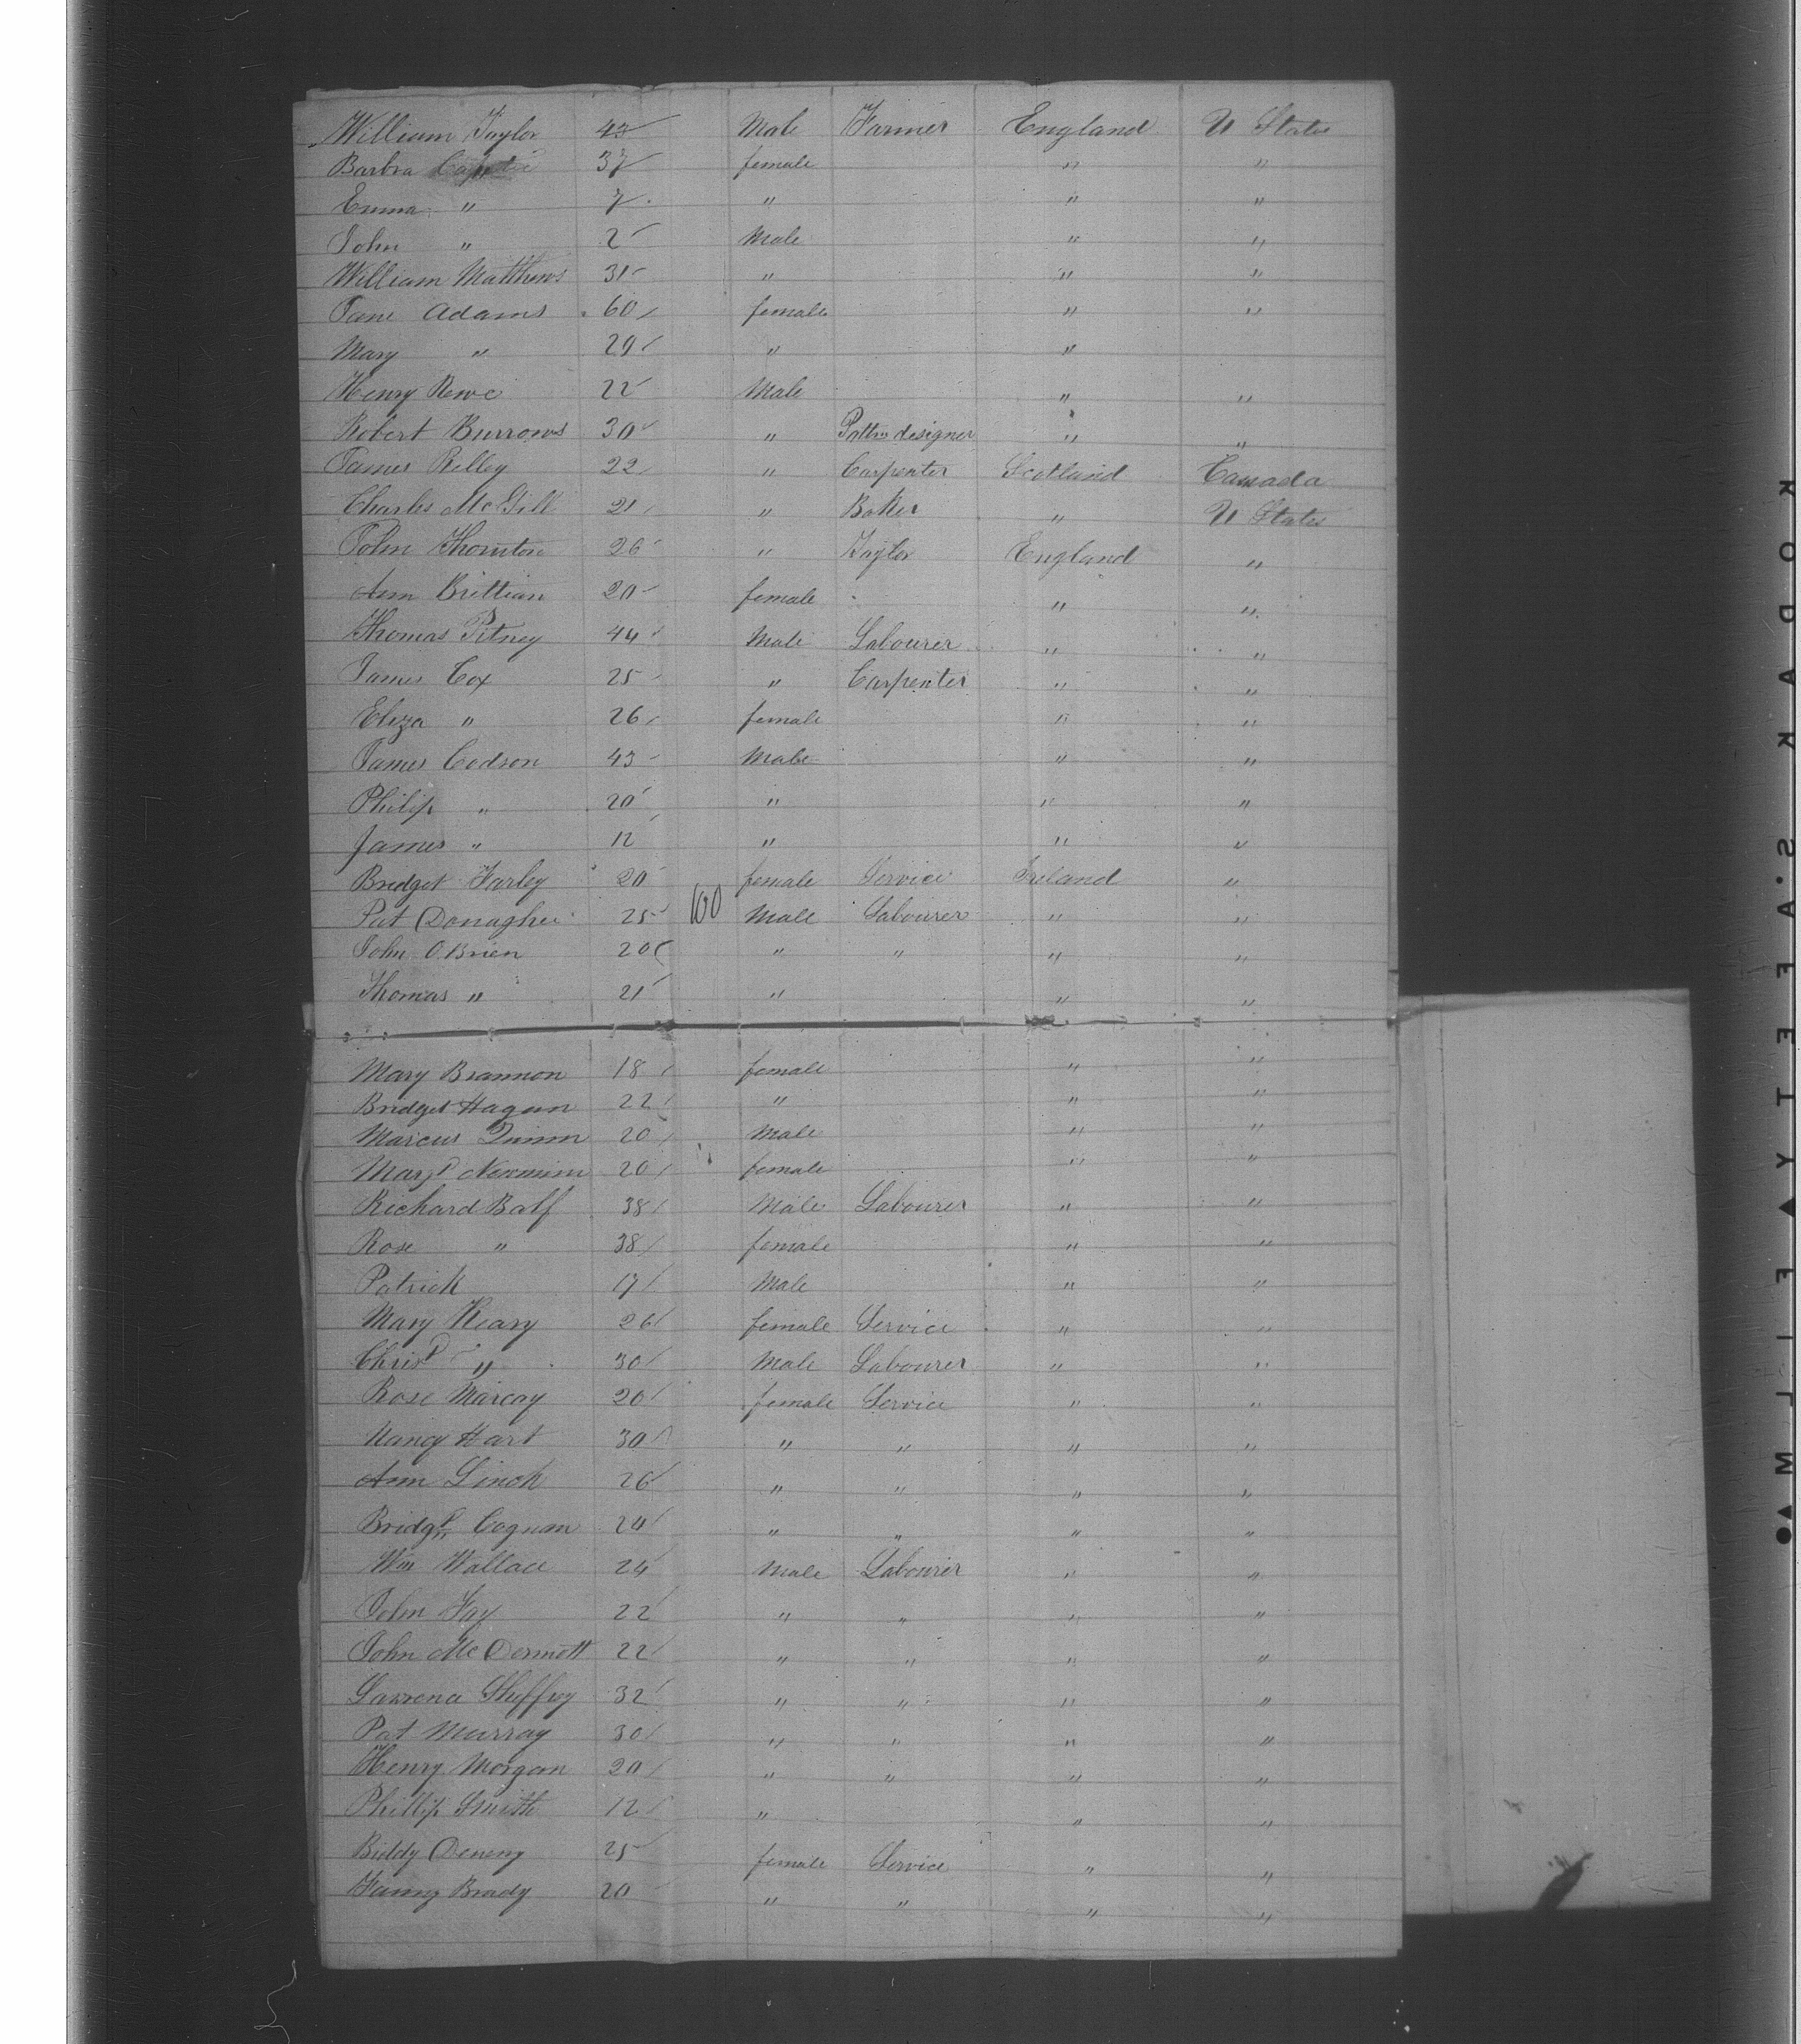 William Taylor 43 Male Farmer England U States
Barbra 37 female " "
Emma " 7 " " "
John " 2 Male " "
William Matthews 31 " " "
Jane Adams 60 female " "
Mary " 29 " "
Henry Rowe 22 Male " "
Robert Burrows 30 " Pattrn designer " "
James Rilley 22 " Carpenter Scotland Canada
Charles McGill 21 " Baker " U States
John Thornton 26 " Taylor England "
Ann Brittian 20 female " "
Thomas Pitney 44 Male Labourer " "
James Cox 25 " Carpenter " "
Eliza " 26 female " "
James Codson 43 Male " "
Philip " 20 " " "
James " 12 " " "
Bridget Farley 20 female Service Ireland "
Pat Donaghee 25 100 Male Labourer " "
John O.Brien 20 " " " "
Thomas " 21 " " "
Mary Brannon 18 female " "
Bridget Hagan 22 " " "
Marcus Quinn 20 Male " "
Margt 20 female " "
Richard Balf 38 Male Labourer " "
Rose " 38 female " "
Patrick 17 Male " "
Mary Keary 26 female Service " "
Christ " 30 Male Labourer " "
Rose Marcay 20 female Service " "
Nancy Hart 30 " " " "
Ann Linch 26 " " " "
Bridgt Cognan 24 " " " "
Wm Wallace 24 Male Labourer " "
John Fay 22 " " " "
John McDermott 22 " " " "
Lawrence Sheffrey 32 " " " "
Pat Murray 30 " " " "
Henry Morgan 20 " " " "
Phillip Smith 12 " " "
Biddy Deneny 25 female Service " "
Fanny Brady 20 " " " "
KODAK S.A.F.E.T.Y ▲ FILM ▲●